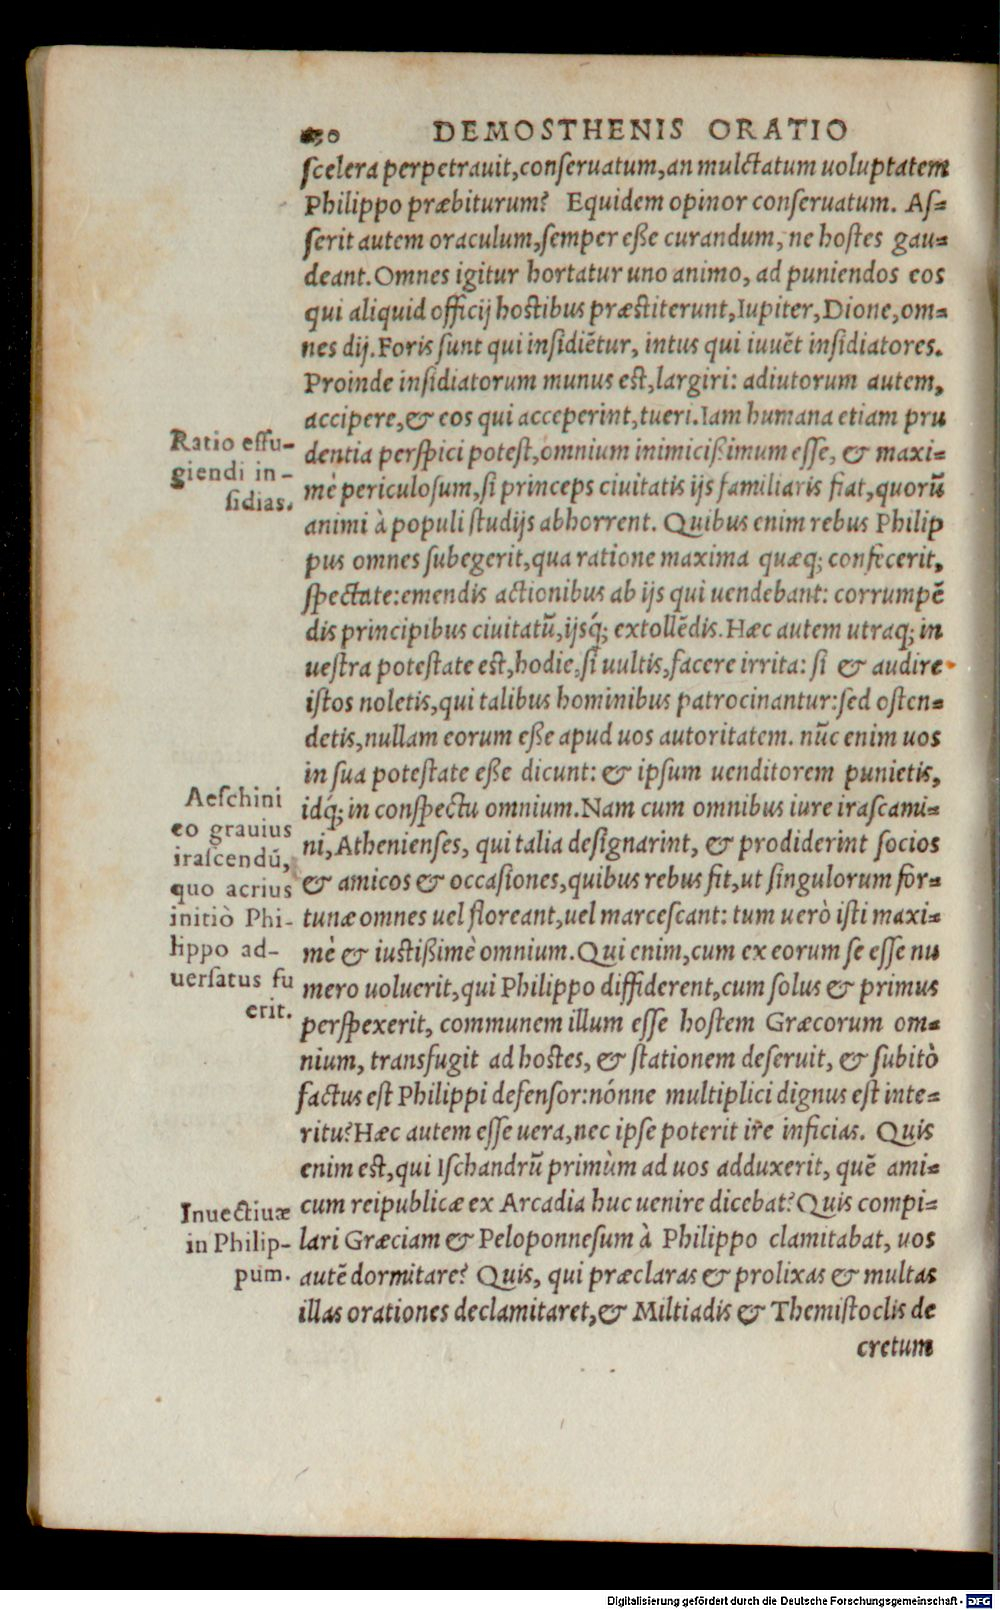 DEMOSTHENIS ORATIO
scelera perpetrauit, conseruatum, an mulctatum uoluptatem
Philippo præbiturum? Equidem opinor conseruatum. As=
serit autem oraculum, semper esse curandum, ne hostes gau=
deant. Omnes igitur hortatur uno animo, ad puniendos eos
qui aliquid officij hostibus præstiterunt, Iupiter, Dione, om=
nes dij. Foris sunt qui insidiẽtur, intus qui iuuẽt insidiatores.
Proinde insidiatorum munus est, largiri: adiutorum autem,
accipere, & eos qui acceperint, tueri. Iam humana etiam pru
Ratio effu-
giendi in-
sidias.
dentia perspici potest, omnium inimicißimum esse, & maxi=
mè periculosum, si princeps ciuitatis ijs familiaris fiat, quorũ
animi à populi studijs abhorrent. Quibus enim rebus Philip
pus omnes subegerit, qua ratione maxima quæq; confecerit,
spectate: emendis actionibus ab ijs qui uendebant: corrumpẽ
dis principibus ciuitatũ, ijsq́; extollẽdis. Hæc autem utraq; in
uestra potestate est, hodie, si uultis, facere irrita: si & audire
istos noletis, qui talibus hominibus patrocinantur: sed osten=
detis, nullam eorum eße apud uos autoritatem. nũc enim uos
in sua potestate eße dicunt: & ipsum uenditorem punietis,
Aeschini
eo grauius
irascendũ,
quo acrius
initiò Phi-
lippo ad-
uersatus fu
erit.
idq́; in conspectu omnium. Nam cum omnibus iure irascami=
ni, Athenienses, qui talia designarint, & prodiderint socios
& amicos & occasiones, quibus rebus fit, ut singulorum for=
tunæ omnes uel floreant, uel marcescant: tum uerò isti maxi=
mè & iustißimè omnium. Qui enim, cum ex eorum se esse nu
mero uoluerit, qui Philippo diffiderent, cum solus & primus
perspexerit, communem illum esse hostem Græcorum om=
nium, transfugit ad hostes, & stationem deseruit, & subitò
factus est Philippi defensor: nónne multiplici dignus est inte=
ritu? Hæc autem esse uera, nec ipse poterit ire inficias. Quis
enim est, qui Ischandrũ primùm ad uos adduxerit, quẽ ami=
Inuectiuæ
in Philip-
pum.
cum reipublicæ ex Arcadia huc uenire dicebat? Quis compi=
lari Græciam & Peloponnesum à Philippo clamitabat, uos
autẽ dormitare? Quis, qui præclaras & prolixas & multas
illas orationes declamitaret, & Miltiadis & Themistoclis de
cretum
Digitalisierung gefördert durch die Deutsche Forschungsgemeinschaft - DFG